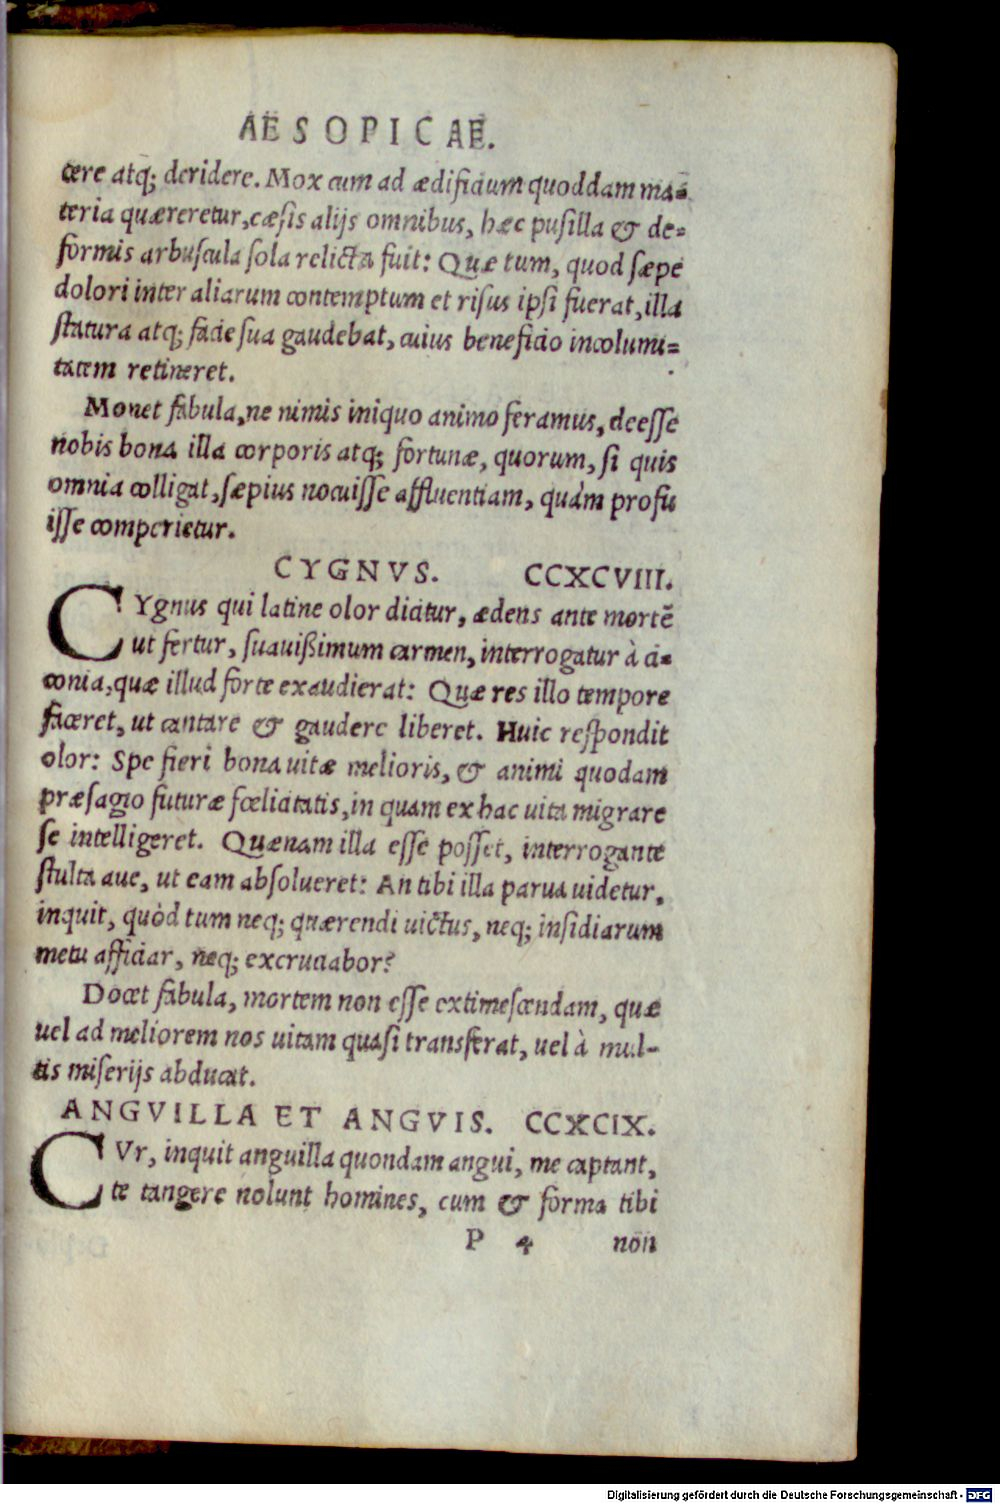 AESOPICAE.
cere atq; deridere. Mox cum ad ædificium quoddam ma=
teria quæreretur, cæsis alijs omnibus, hæc pusilla & de=
formis arbuscula sola relicta fuit: Quæ tum, quod sæpe
dolori inter aliarum contemptum et risus ipsi fuerat, illa
statura atq; facie sua gaudebat, cuius beneficio incolumi=
tatem retineret.
Monet fabula, ne nimis iniquo animo feramus, deesse
nobis bona illa corporis atq; fortunæ, quorum, si quis
omnia colligat, sæpius nocuisse affluentiam, quàm profu
isse comperietur.
CYGNVS. CCXCVIII.
CYgnus qui latine olor dicitur, ædens ante mortẽ
ut fertur, suauißimum carmen, interrogatur à ci=
conia, quæ illud forte exaudierat: Quæ res illo tempore
faceret, ut cantare & gaudere liberet. Huic respondit
olor: Spe fieri bona uitæ melioris, & animi quodam
præsagio futuræ fœlicitatis, in quam ex hac uita migrare
se intelligeret. Quænam illa esse posset, interrogante
stulta aue, ut eam absolueret: An tibi illa parua uidetur,
inquit, quòd tum neq; quærendi uictus, neq; insidiarum
metu afficiar, neq; excruciabor?
Docet fabula, mortem non esse extimescendam, quæ
uel ad meliorem nos uitam quasi transferat, uel à mul-
tis miserijs abducat.
ANGVILLA ET ANGVIS. CCXCIX.
CVr, inquit anguilla quondam angui, me captant,
te tangere nolunt homines, cum & forma tibi
P 4 non
Digitalisierung gefördert durch die Deutsche Forschungsgemeinschaft - DFG